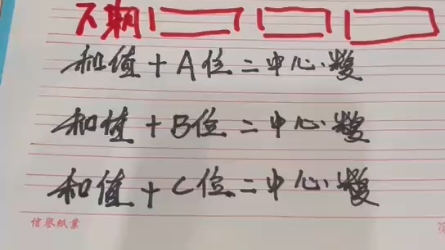 下期
和值+A位=中心数
和值+B位=中心数
和值+C位=中心数
信誉纸业